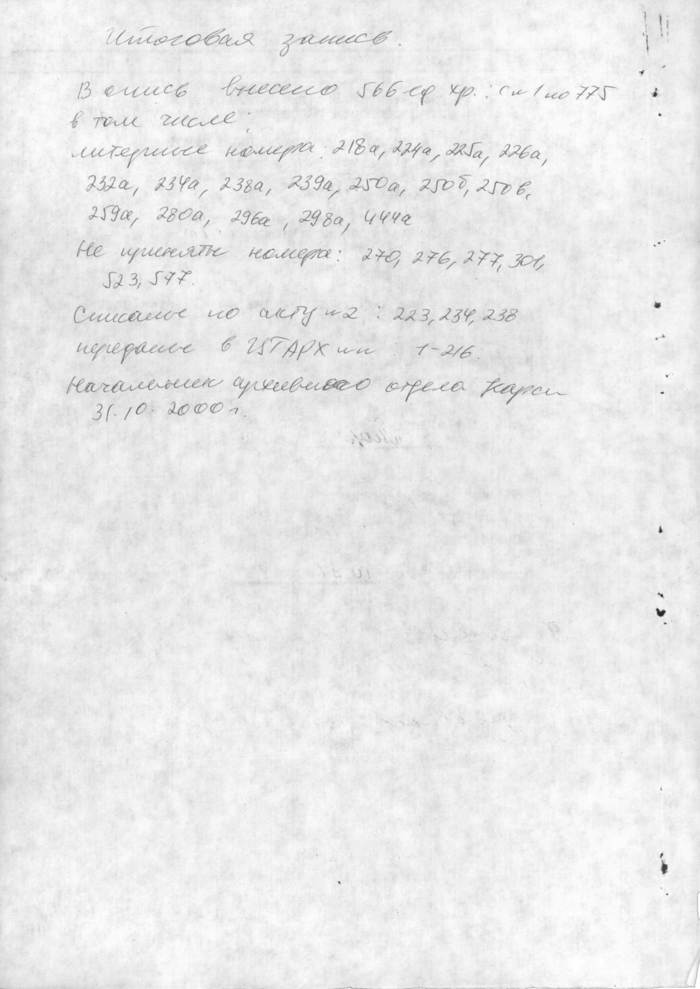 Итоговая запись.
В опись внесено 566 ед хр.: с № 1 по 775
в том числе:
литерные номера: 218а, 224а, 225а, 226а,
232а, 234а, 238а, 239а, 250а, 250б, 250в,
259а, 280а, 296а, 298а, 444а
Не приняты номера: 270, 276, 277, 301,
523, 577.
Списаные по акту №2 : 223, 234, 238
переданые в 1-216.
Начальник архивного отдела
31.10.2000 г.